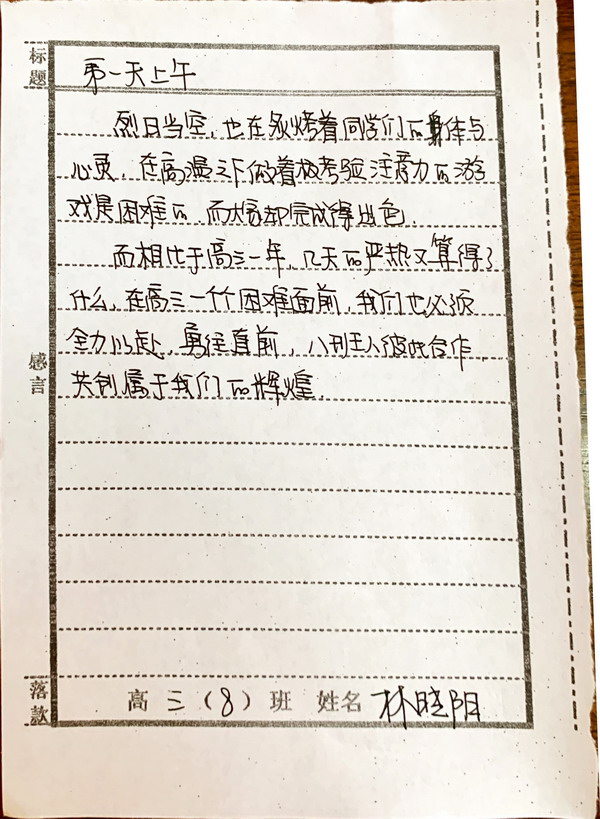 标题
第一天上午
烈日当空，也在炙烤着同学们的身体与
心灵，在高温之下做着极考验注意力的游
戏是困难的，而大家却完成得出色。
而相比于高三一年，几天的严热又算得了
什么，在高三一个个困难面前，我们也必须
全力以赴，勇往直前，八班人彼此合作，
共创属于我们的辉煌。
感言
落款
高三（8）班 姓名 林晓阳